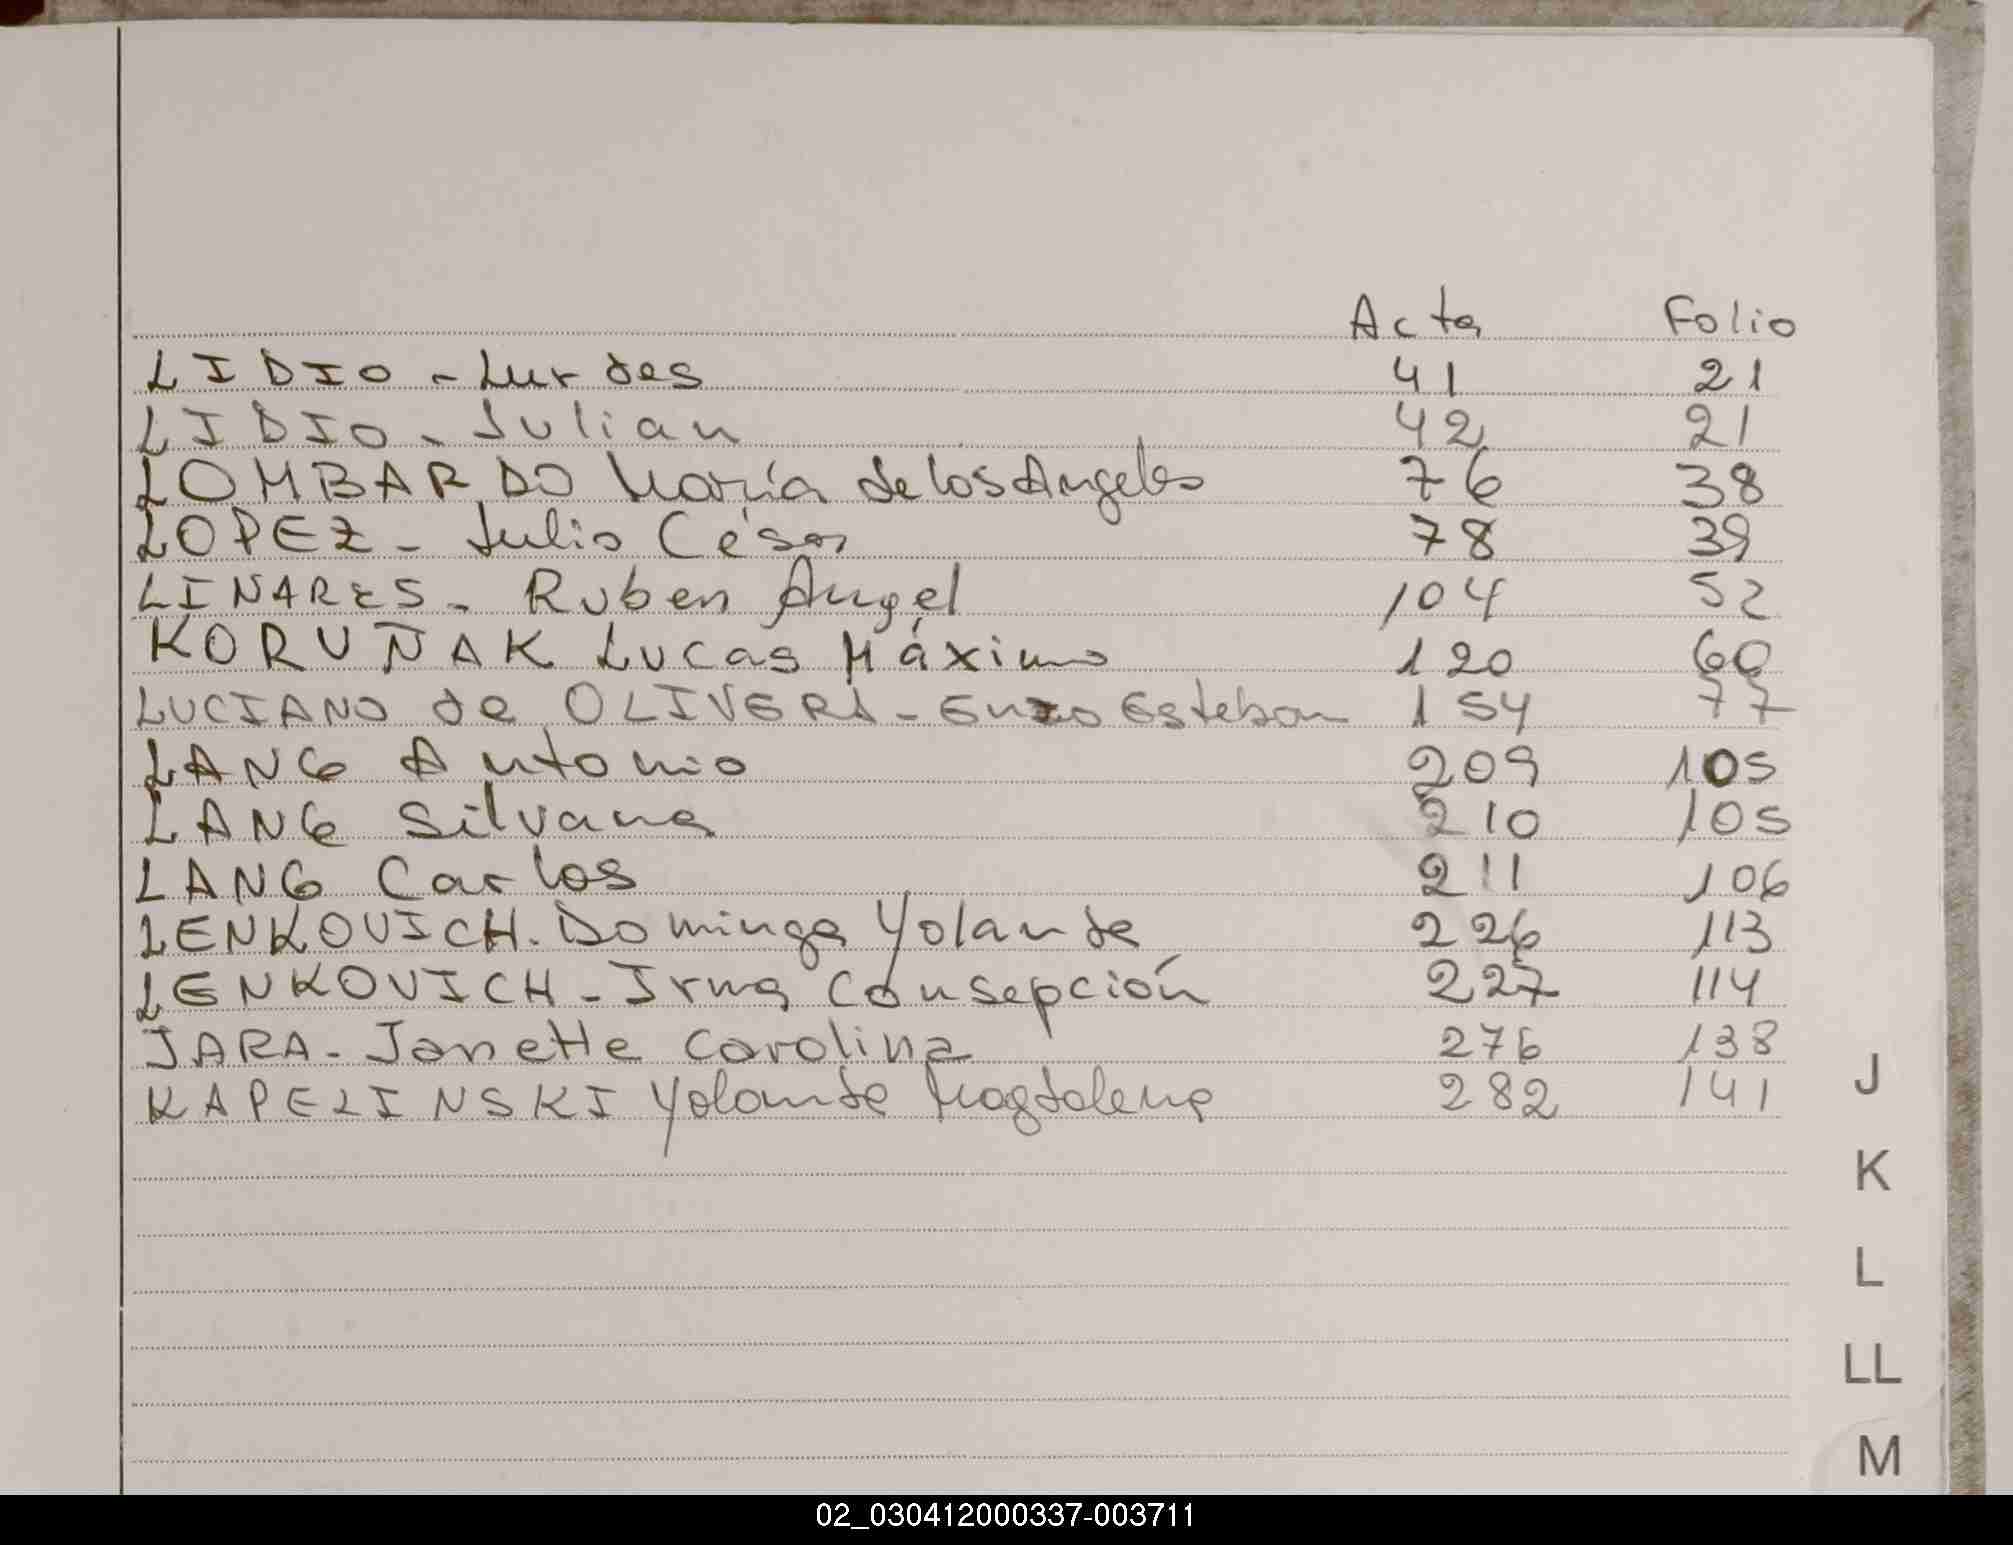 Acta Folio
LIDIO - Lurdes 41 21
LIDIO - Julian 42 21
LOMBARDO María de los Angeles 76 38
LOPEZ - Julio César 78 39
LINARES - Ruben Ángel 104 52
KORUÑAK Lucas Máximo 120 60
LUCIANO de OLIVERA - Enzo Esteban 154 77
LANG Antonio 209 105
LANG Silvana 210 105
LANG Carlos 211 106
LENKOVICH - Dominga Yolanda 226 113
LENKOVICH - Irma Consepción 227 114
JARA - Janette Carolina 276 138
KAPELINSKI Yolanda Magdalena 282 141
J
K
L
LL
M
02_030412000337-003711